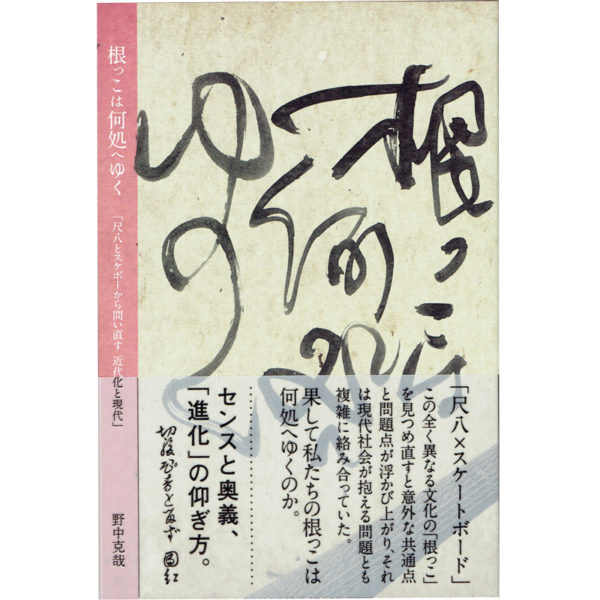 根っこは何処へゆく
「尺八とスケボーから問い直す 近代化と現代」
野中克哉
根っこは
何処へ
ゆく
「尺八×スケートボード」
この全く異なる文化の「根っこ」
を見つめ直すと意外な共通点
と問題点が浮かび上がり、それ
は現代社会が抱える問題とも
複雑に絡み合っていた。
果して私たちの根っこは
何処へゆくのか。
センスと奥義、
「進化」の仰ぎ方。